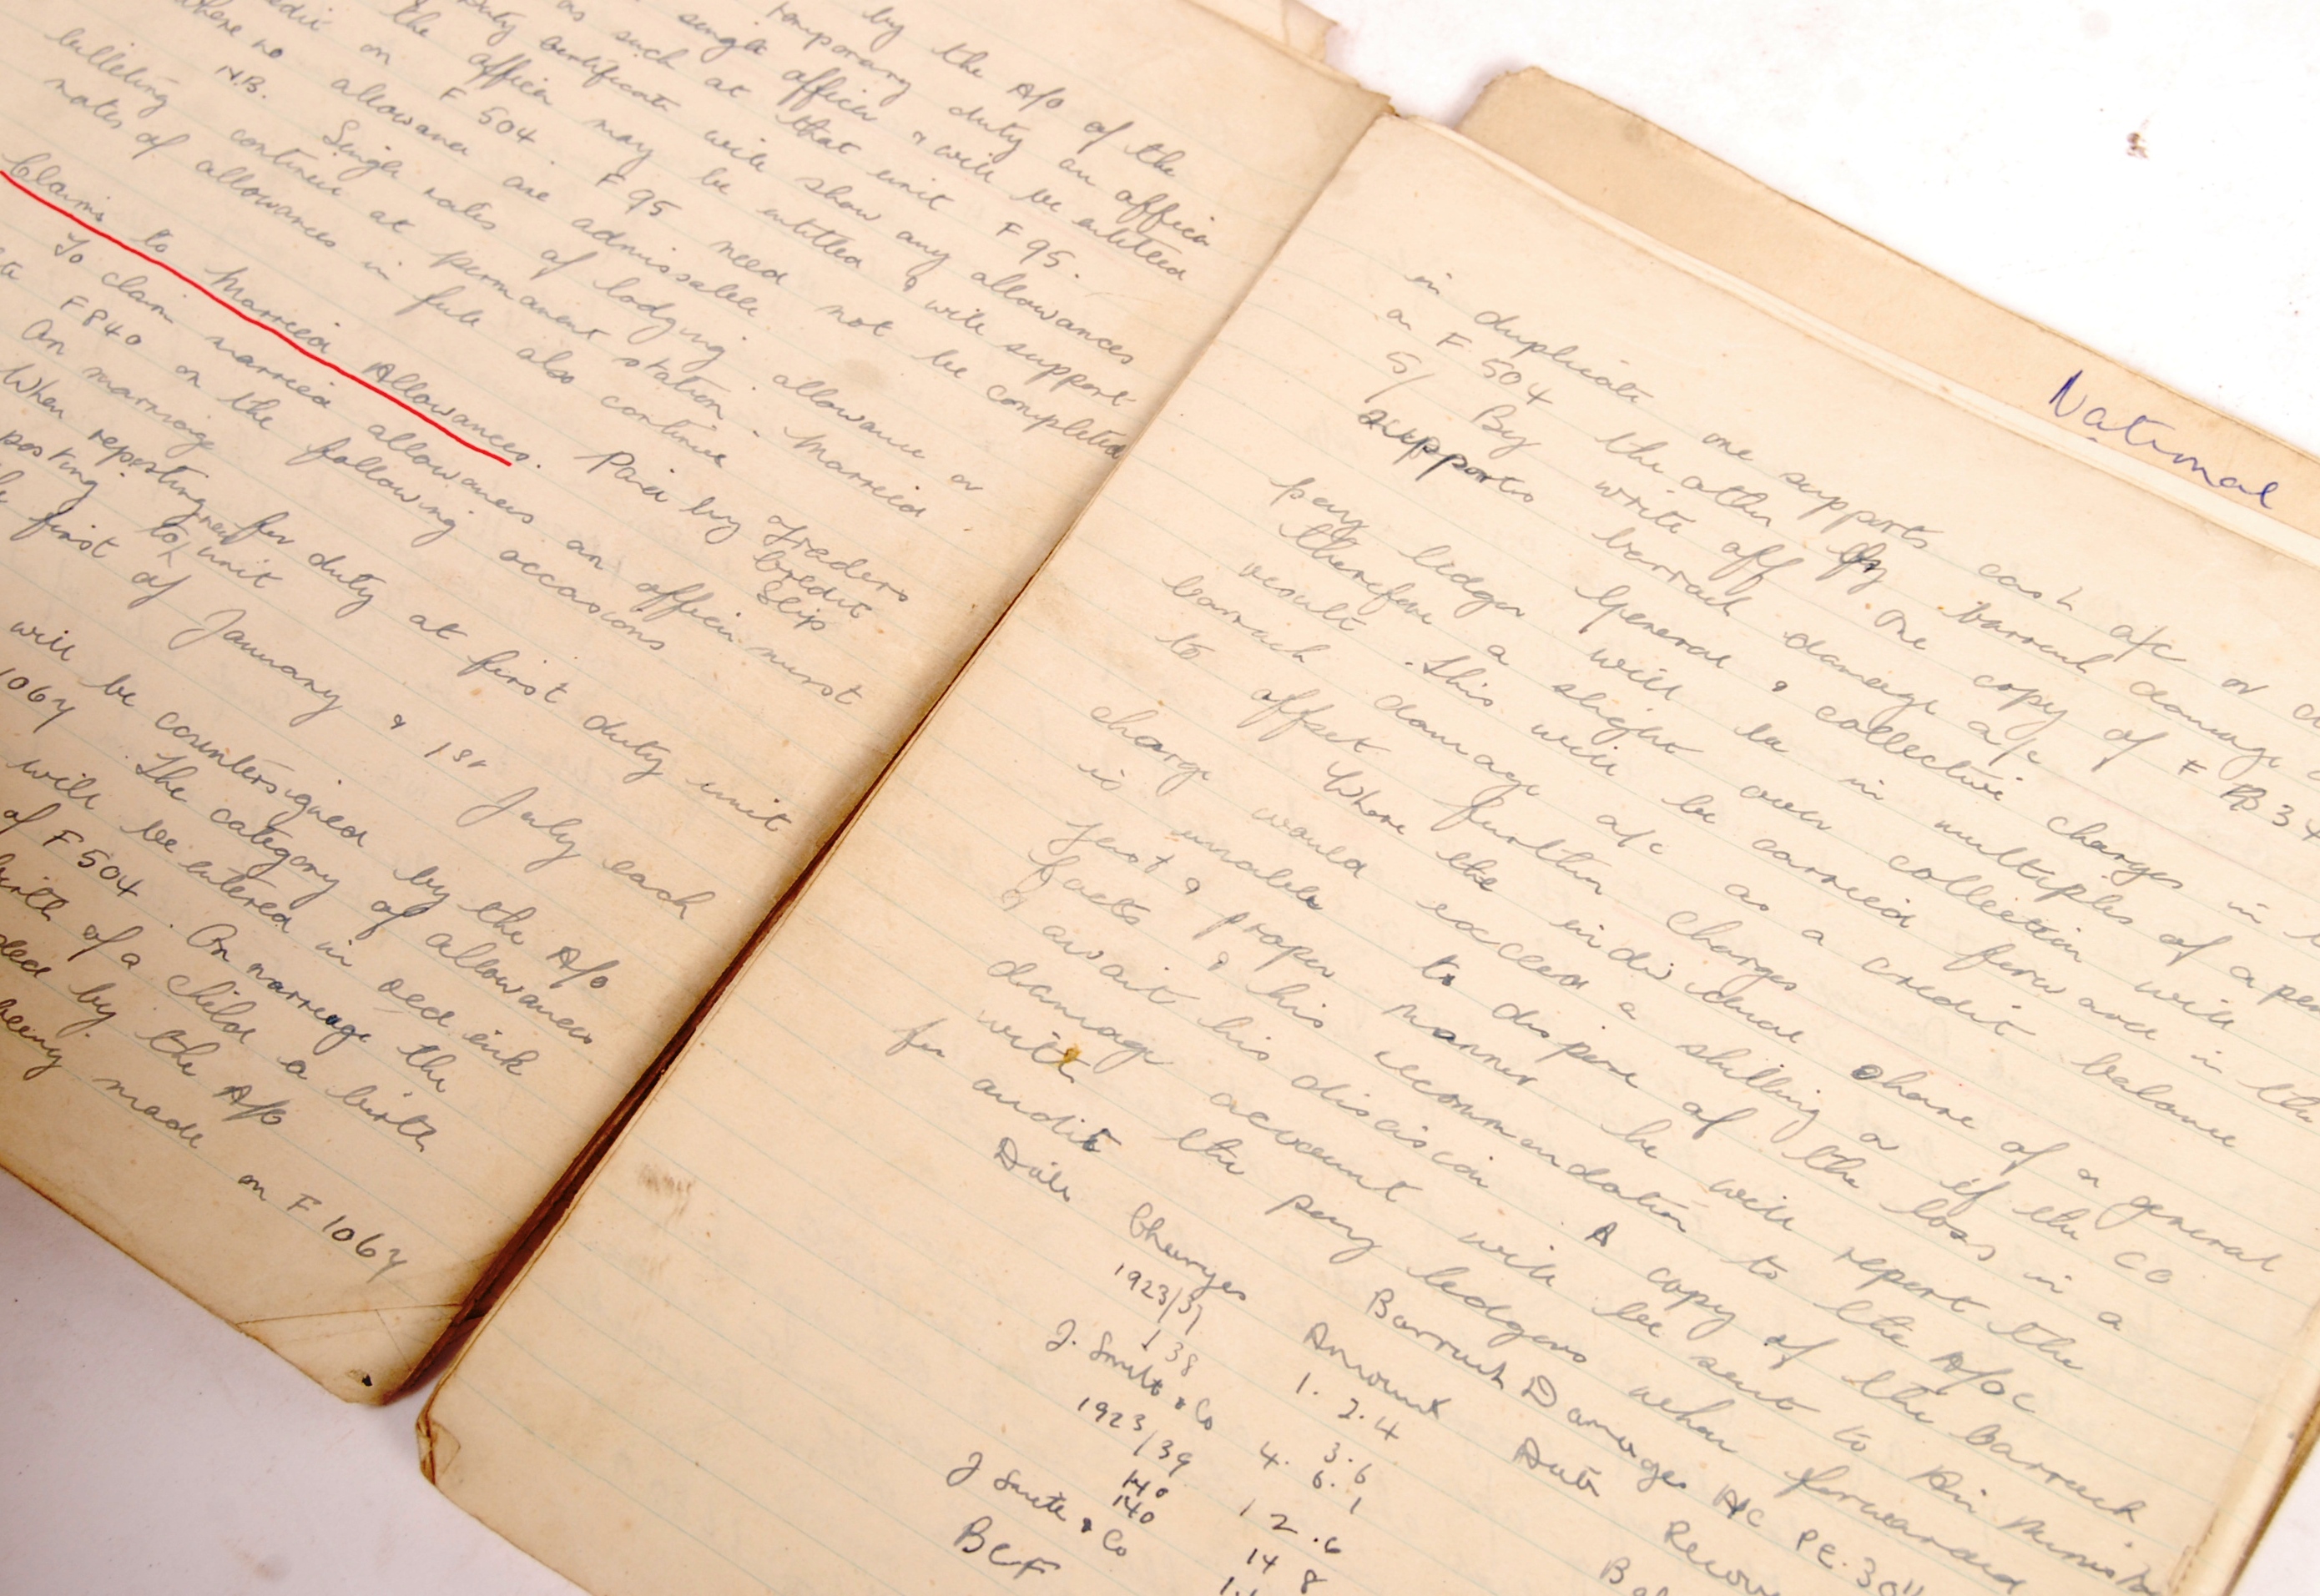 by the A/O of the
temporary duty an officer
single officer & will be entitled
as such at that unit F 95.
duty certificate will show any allowances
the officer may be entitled & will support
credit on F 504. F 95 need not be completed
where no allowance are admissable.
N.B. Single rates of lodging allowance or
billeting continue at permanent station. Married
rates of allowances in full also continue
Claims to Married Allowances. Paid by Traders
Credit
Slip
To claim married allowances an officer must
F 840 on the following occasions
On marriage
When reporting for duty at first duty unit
posting to new unit
first of January & 1st July each
will be countersigned by the A/O
1067. The category of allowances
will be entered in red ink
of F 504. On marriage the
birth of a child a birth
by the A/O
being made on F 1067
National
in duplicate one supports cash a/c or
an F 504 the other by barrack damage
5/ By write off One copy of F P 34
supports barrack damage a/c
General & collective charges in
pay ledger will be in multiples of a pen
therefore a slight over collection will
result. This will be carried forward in the
barrack damage a/c as a credit balance
to offset further charges
Where the individual share of a general
charge would exceed a shilling or if the CO
is unable to dispose of the loss in a
just & proper manner he will report the
facts & his recommendation to the A/O C
& await his decision A copy of the barrack
damage account will be sent to Air Ministry
with the pay ledgers when forwarded
for audit
Barrack Damages A/C PE. 30
Date Charges Amount Date Recov
1923/37 1. 2. 4
138
J. Smith & Co 4. 3. 6
1923/39 6. 1
140 12. 6
140 14 8
J Smith & Co
BCF